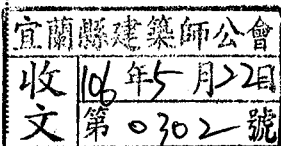 宜蘭縣建築師公會
收文
106年5月22日
第0302號